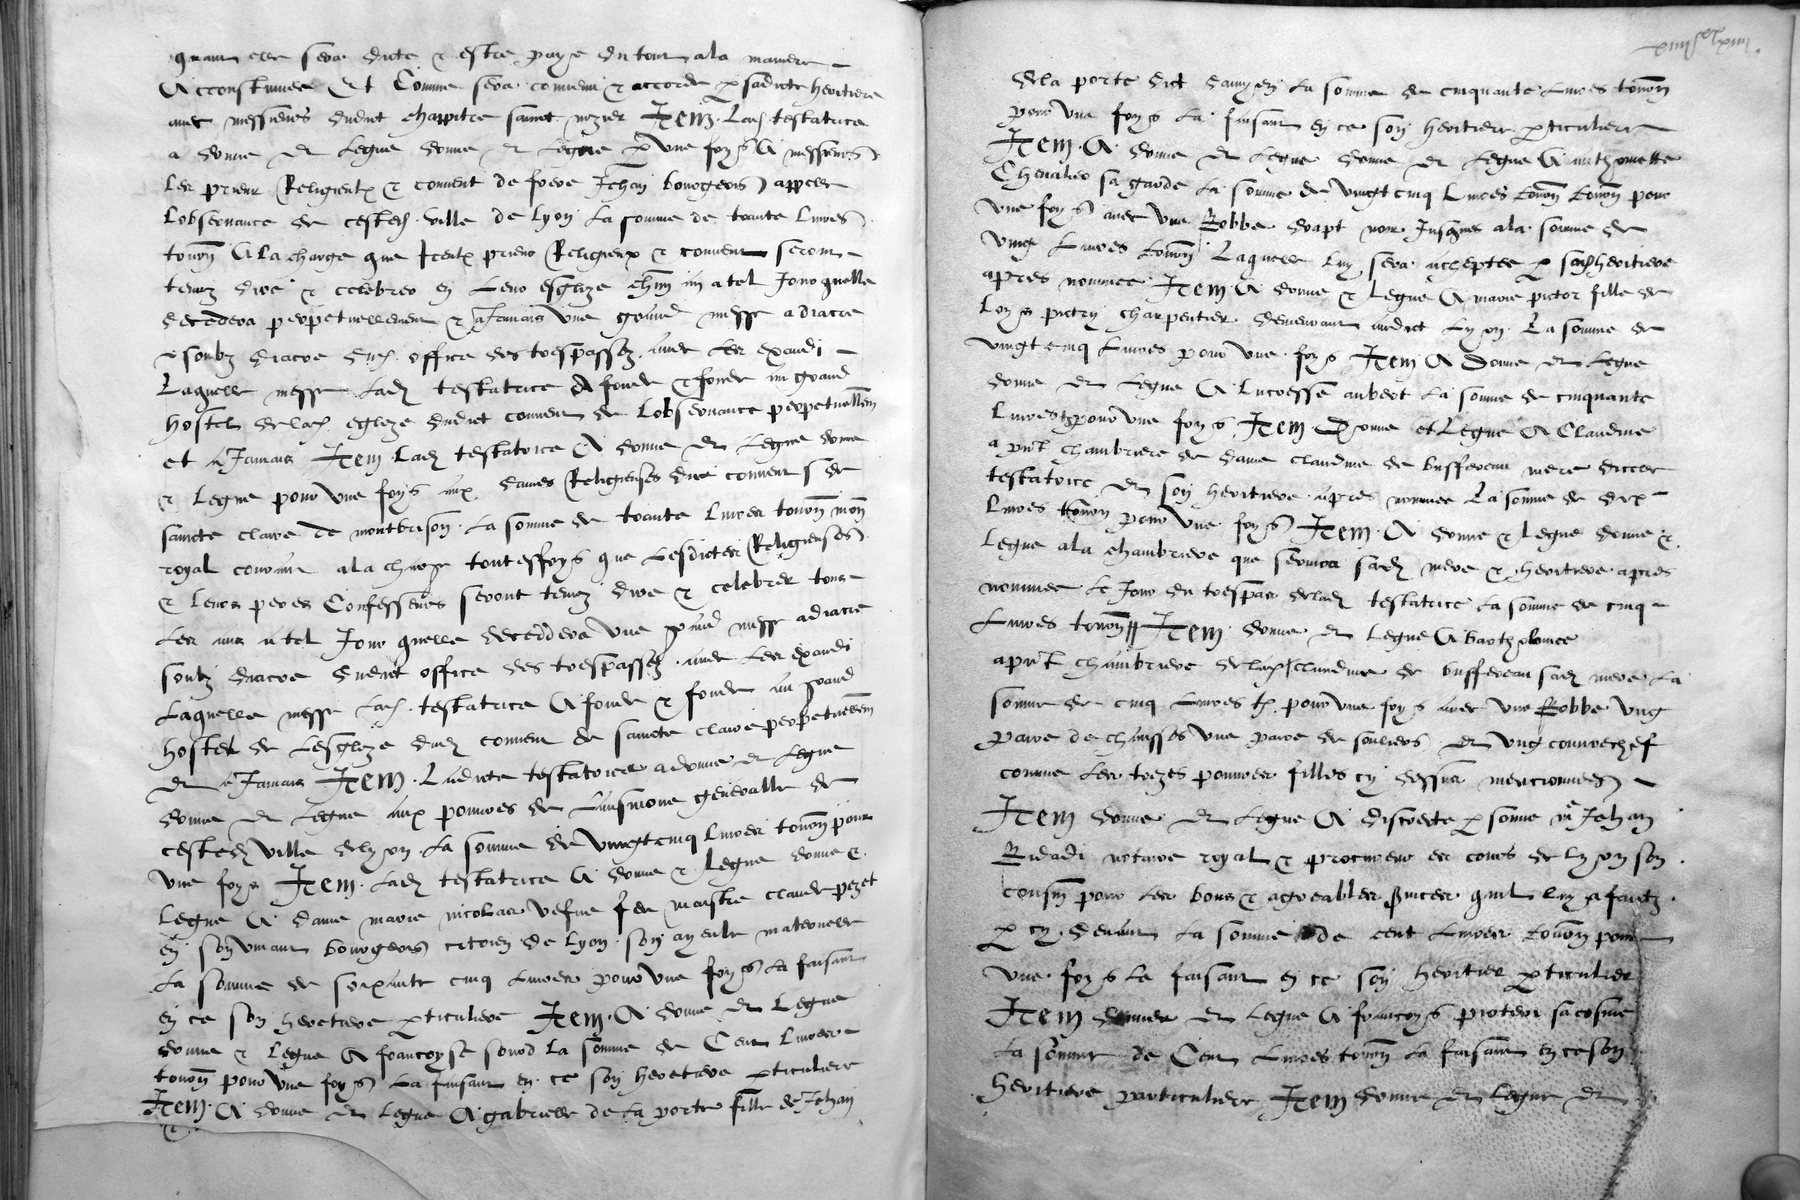 quant elle sera dicte & estre paye du tour a la maniere
Acconstumee Et Comme sera convenu & accorde p sadicte heritiere
avec messieurs dudict chappitre sainct nizier Item Lad testatrice
a donne et legue donne et legue p une foys A messieurs
les prieur Religieulx & couvent de frere Jehan bourgeois appelle
Lobservance de cested ville de lyon la somme de trante livres
tourn A la charge que Iceulx prieur Religieux & couvent seront
tenuz dire & celebrer en leur esglize chun an a tel Jour quelle
decedera perpetuellement & a Jamais une grand messe a diacre
& soubz diacre dud office des trespassez avec les exaudi
Laquelle messe Lad testatrice A fonde & fonde au grand
hostel de lad eglize dudict couvent de Lobservance perpetuellem
et a Jamais Item Lad testatrice A donne et legue donne
& legue pour une foys aux dames Religieuses du couvent de
saincte claire de montbrison la somme de trante livres tourn mon
royal courant a la charge touteffoys que lesdictes Religieuses
& leurs peres Confesseurs seront tenuz dire & celebrer tous
les ans a tel Jour quelle deceddera une grand messe a diacre
soubz diacre dudict office des trespassez avec les exaudi
Laquelle messe Lad testatrice A fonde & fonde au grand
hostel de lesglize dud couvent de saincte claire perpetuellem
et a Jamais Item Ladicte testatrice a donne et legue
donne et legue aux pouvres de laulmosne generalle de
cested ville de lyon la somme de vingt cinq livres tourn pour
une foys Item Lad testatrice A donne & legue donne &
legue A dame marie nicolas vefve feu maistre claude pezet
en son vivant bourgeois citoien de lyon son ayeulle maternelle
la somme de soixante cinq livres pour une foys la faisant
en ce son heretiere pticuliere Item A donne et legue
donne & legue A francoyse sourd la somme de Cent livres
tourn pour une foys la faisant en ce son heretiere pticuliere
Item A donne et legue A gabrielle de la porte fille de Jehan
de la porte dict la somme de cinquante livres tourn
pour une foys la faisant en ce son heritiere pticuliere
Item A donne et legue donne et legue A anthomette
Chevalier sa garde la somme de vingt cinq livres tourn tourn pour
une foys avec une Robbe drapt noir Jusques a la somme de
vingt livres tourn Laquelle luy sera acheptee p sad heritiere
apres nommee Item A donne & legue A marie pictor fille de
loys pictry charpentier demeurant audict lyon La somme de
vingt cinq livres pour une foys Item A Donne et legue
donne et legue A lucresse aubert la somme de cinquante
livres pour une foys Item Donne et Legue A Claudine
a pnt chambriere de dame claudine de buffereau mere dicelle
testatrice et son heritiere apres nommee La somme de dix
livres tourn pour une foys Item A donne & legue donne &
legue a la chambriere que servira sad mere & heritiere apres
nommee le Jour du trespas de lad testatrice la somme de cinq
Livres tourn Item donne et legue A barthelomiee
a pnt chambriere de lad claudine de buffereau sad mere la
somme de cinq livres tz pour une foys avec une Robbe ung
paire de chausses une paire de souliers et ung couvrechef
comme les treze pouvres filles cy dessus mencionnees
Item donne et legue A discrete psonne me Jehan
Ridadi notaire royal & procureur es cours de lyon son
cousin pour les bons & agreables services quil luy a faictz
p cy devant la somme de cent livres tourn pour
une foys le faisant en ce son heritier pticulier
Item donne et legue A francoys protevi sa cosine
la somme de Cent livres tourn la faisant en ce son
heritiere particuliere Item donne et legue et